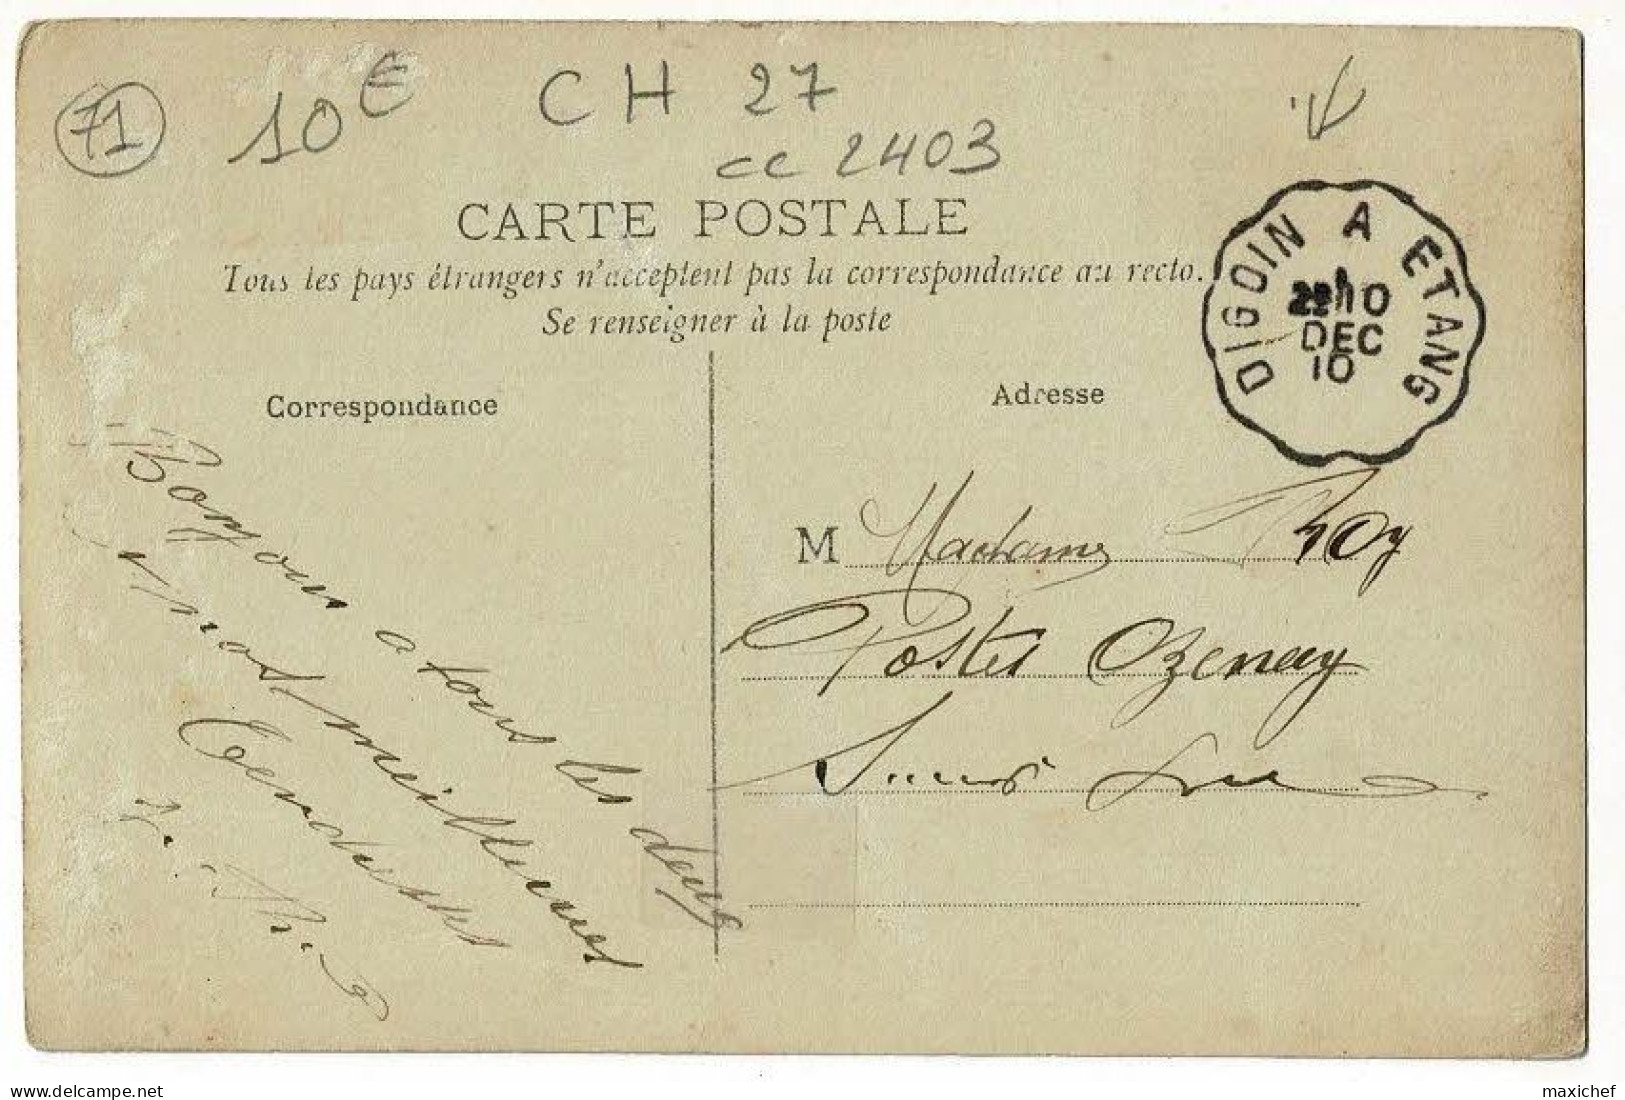 71
10€
CH 27
cc 2403
CARTE POSTALE
Tous les pays étrangers n'acceptent pas la correspondance au recto.
Se renseigner à la poste
DIGOIN A ETANG
DEC
10
Correspondance
Adresse
Bonjour a tous les deux
nos meilleures
Tendresses
M Madame Roy
Postes Ozenay
delcampe.net
maxichef